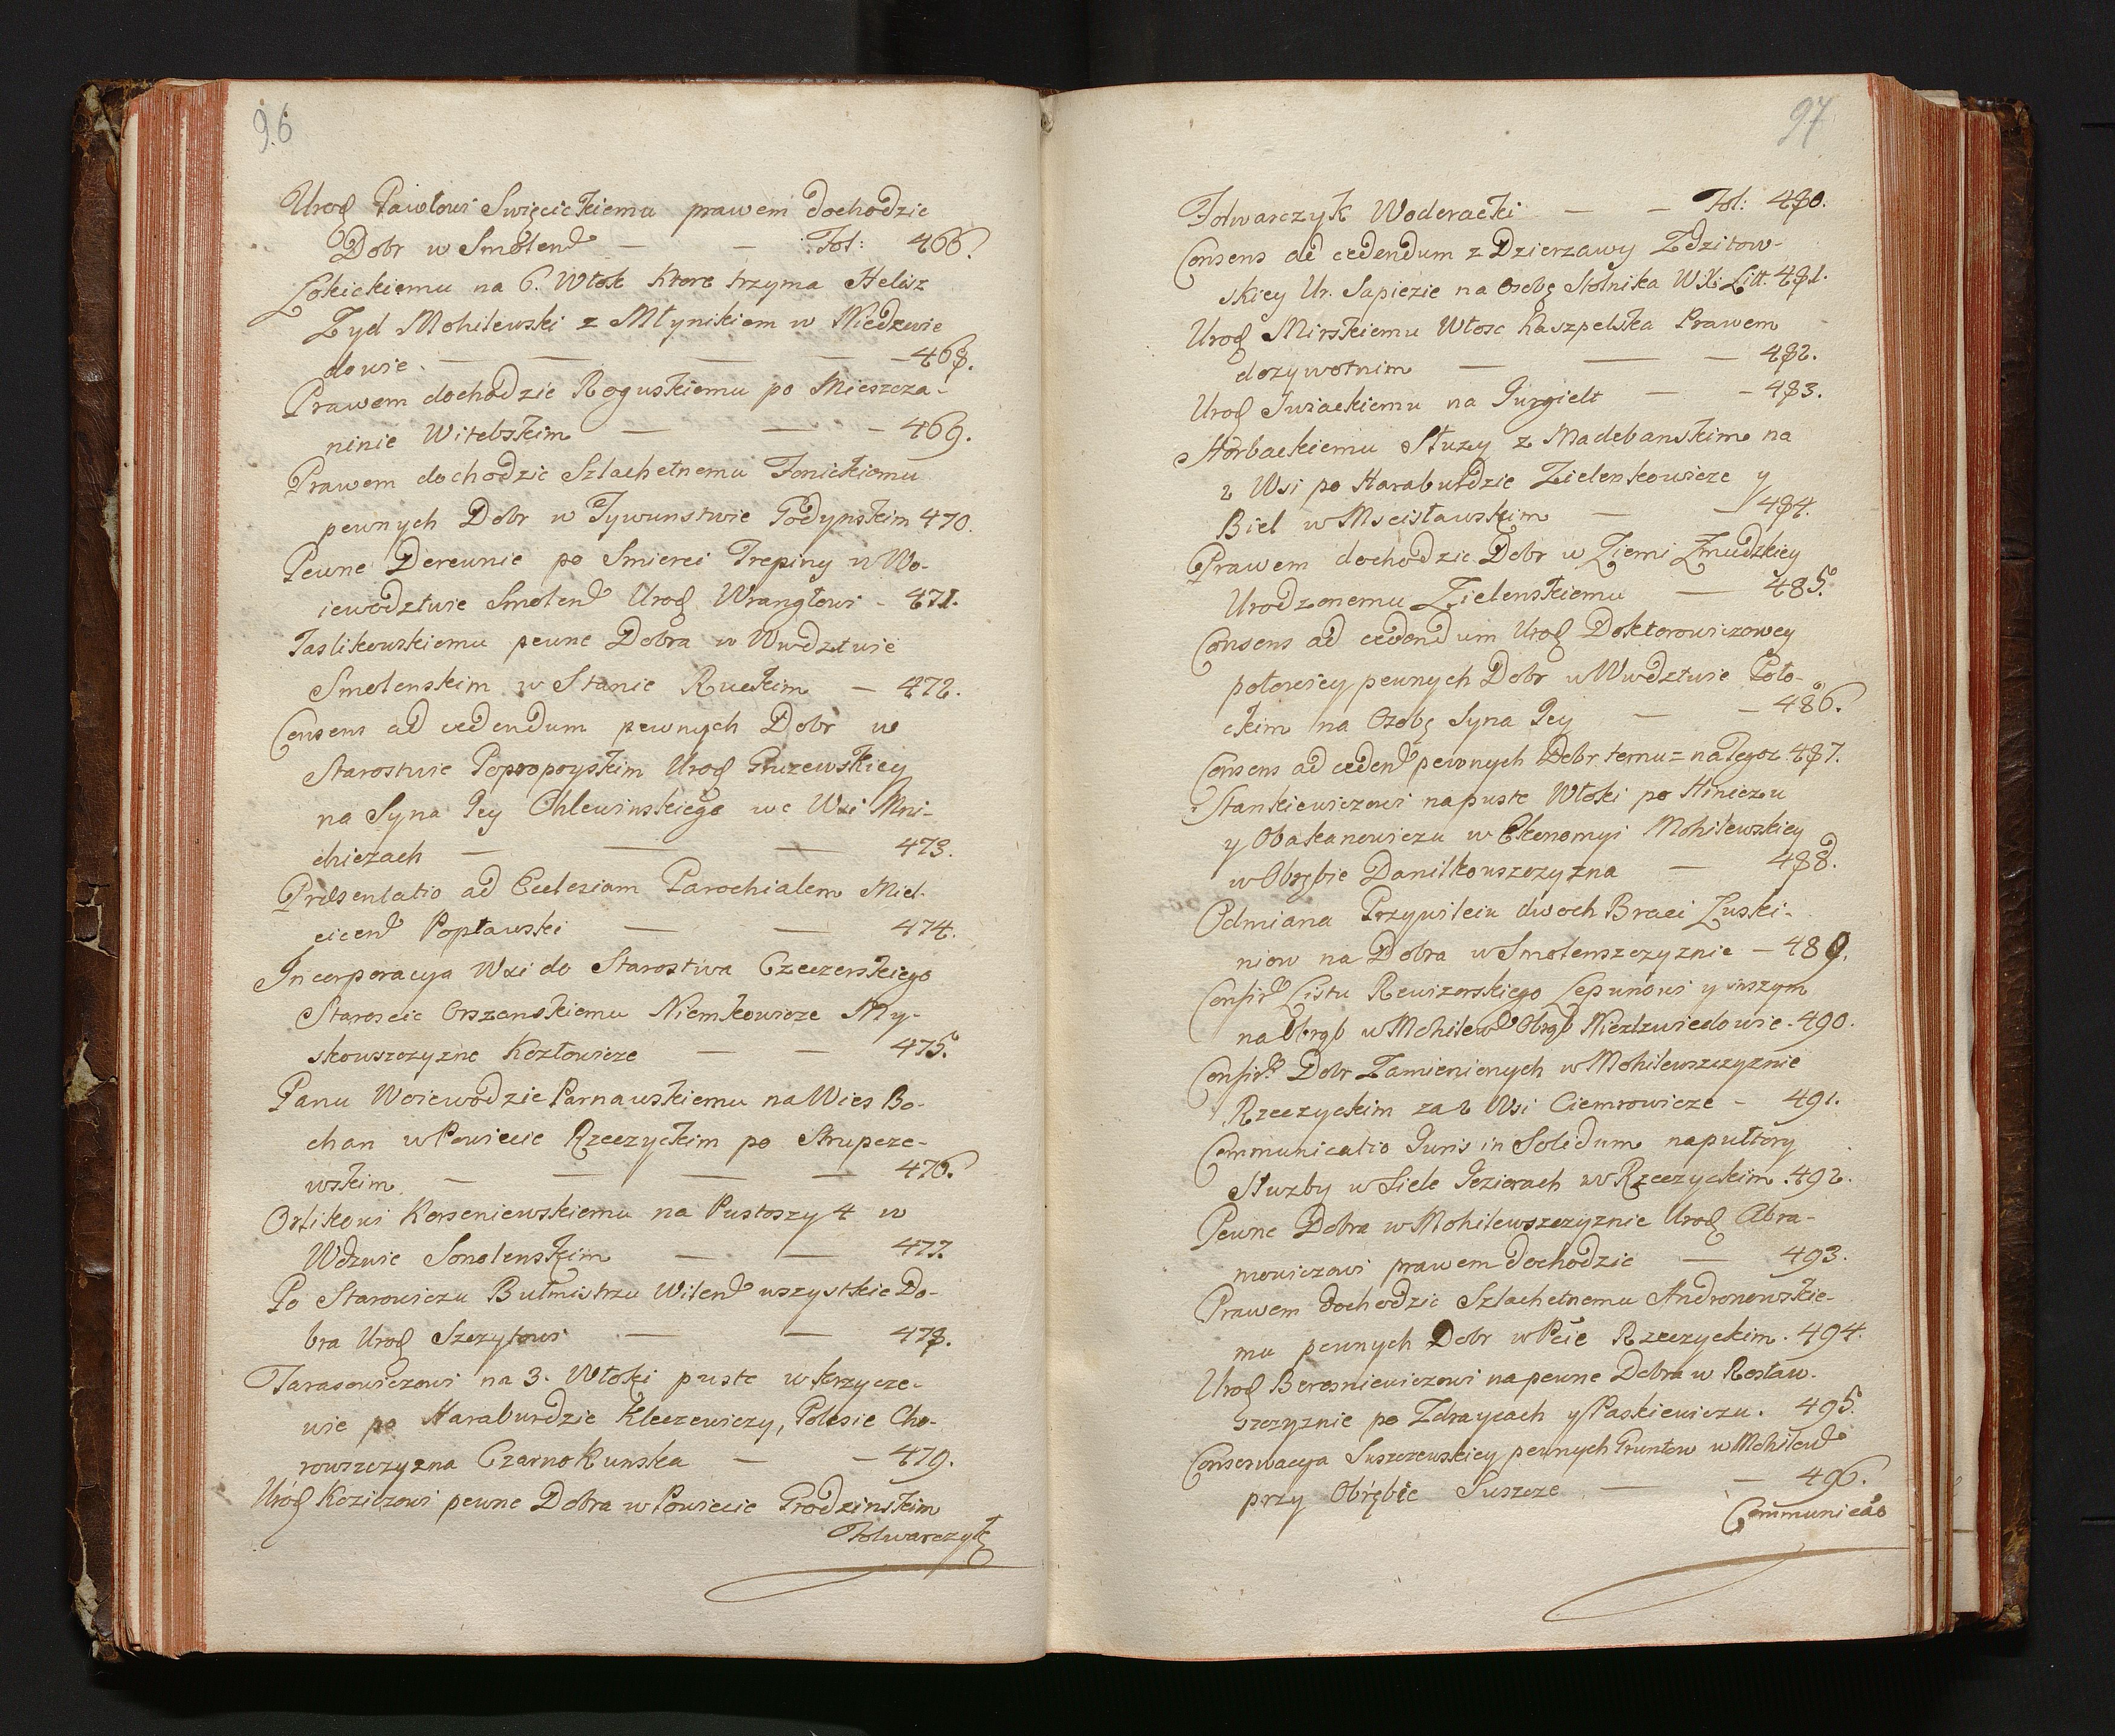 96
Urod Pawłowi Swięcickiemu prawem dochodzic
Dobr w Smolend — — Fol: 466.
Łokickiemu na 6. Włok ktore trzyma Helisz
Zyd Mohilewski z Młynikiem w Niedzwie
dowie. — — — — 468.
Prawem dochodzic Roguskiemu po Mieszcza-
ninie Witebskim — — — 469.
Prawem dochodzic Szlachetnemu Jonickiemu
pewnych Dobr w Tywunstwie Godynskim 470.
Pewne Derewnie po Smierci Trepiny w Wo-
iewodztwie Smolend Urod Wranglowi - 471.
Jaslikowskiemu pewne Dobra w Wwdztwie
Smolenskim w Stanie Ruckim — 472.
Consens ad cedendum pewnych Dobr w
Starostwie Poporoyskim Urod Gruzewskiey
na Syna Jey Chlewinskiego we Wsi Mni-
chiczach — — — 473.
Præsentatio ad Ecclesiam Parochialem Miel-
cicend Popławski — — 474.
Incorporacya Wsi do Starostwa Czeczerskiego
Staroscie Orszanskiemu Niemkowicze My-
skowszczyzne Kozłowicze — — 475.
Panu Woiewodzie Parnawskiemu na Wies Bo-
chan w Powiecie Rzeczyckim po Skrupcze-
wskim. — — — — 476.
Orlikowi Korseniewskiemu na Pustoszy 4 w
Wdzwie Smolenskim — — 477.
Po Starowiczu Bułmistrzu Wilend wszystkie Do-
bra Urod Szczytowi — — 478.
Tarasowiczowi na 3. Włoki puste w Krzycze-
wie po Haraburdzie Kleczewiczy, Polesie Cho-
rowszczyzna Czarnokunska — — 479.
Urod Koziczowi pewne Dobra w Powiecie Grodzinskim
Folwarczyk
97
Folwarczyk Woderacki — — Fol: 480.
Consens ad cedendum z Dzierzawy Zdzitow-
skiey Ur. Sapiezie na Osobę Stolnika W. X. Litt. 481.
Urod Mirskiemu Włosc Kaszpelska Prawem
dozywotnim — — — 482.
Urod Iwiackiemu na Jurgielt — — 483.
Horbackiemu Słuzy z Madebanskim na
2 Wsi po Haraburdzie Zielenkowicze y
Biel w Mscisławskim — — 484.
Prawem dochodzic Dobr w Ziemi Zmudzkiey
Urodzonemu Zielenskiemu — 485.
Consens ad cedendum Urod Doktorowiczowey
połowicy pewnych Dobr w Wwdztwie Poło-
ckim na Osobę Syna Jey — — 486.
Consens ad cedend pewnych Dobr temu= na Tegoz 487.
Stankiewiczowi na puste Włoki po Hineczu
y Obakanowiczu w Ekonomyi Mohilewskiey
w Obrębie Daniłkowszczyzna — 488.
Odmiana Przywileiu dwoch Braci Łuski-
niow na Dobra w Smolenszczyznie — 489.
Confird Listu Rewizorskiego Lepunowi y inszym
na Obrąb w Mohilewd Obrąb Niedzwiedowie. 490.
Confird Dobr Zamienionych w Mohilewszczyznie
Rzeczyckim za 2 Wsi Ciemrowicze - 491.
Communicatio Juris in Solidum na pułtory
Słuzby w Siele Jezierach w Rzeczyckim. 492.
Pewne Dobra w Mohilewszczyznie Urod Abra-
mowiczowi prawem dochodzic — 493.
Prawem dochodzic Szlachetnemu Andronowskie-
mu pewnych Dobr w Pcie Rzeczyckim. 494.
Urod Beresniewiczowi na pewne Dobra w Rosław-
szczyznie po Zdraycach y Paskiewiczu. 495.
Conserwacya Suszczewskiey pewnych Gruntow w Mohilewd
przy Obrębie Suszcze — — 496.
Communicao